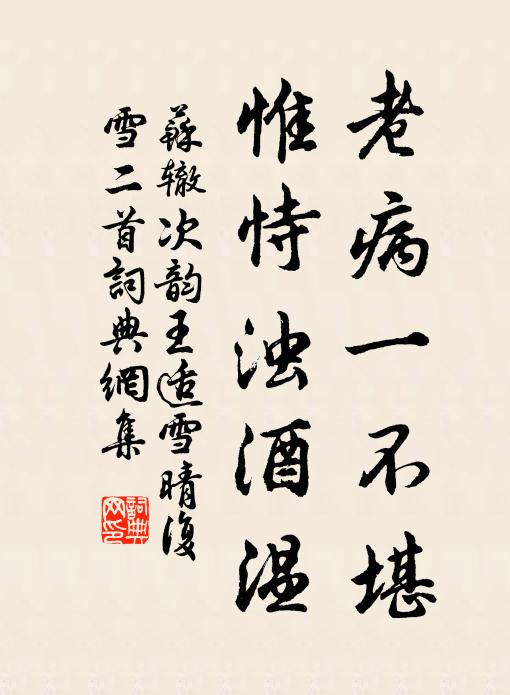 老病一不堪
惟恃浊酒温
蘇辙次韵王适雪晴復
雪二首詞典網集
詞典
网印